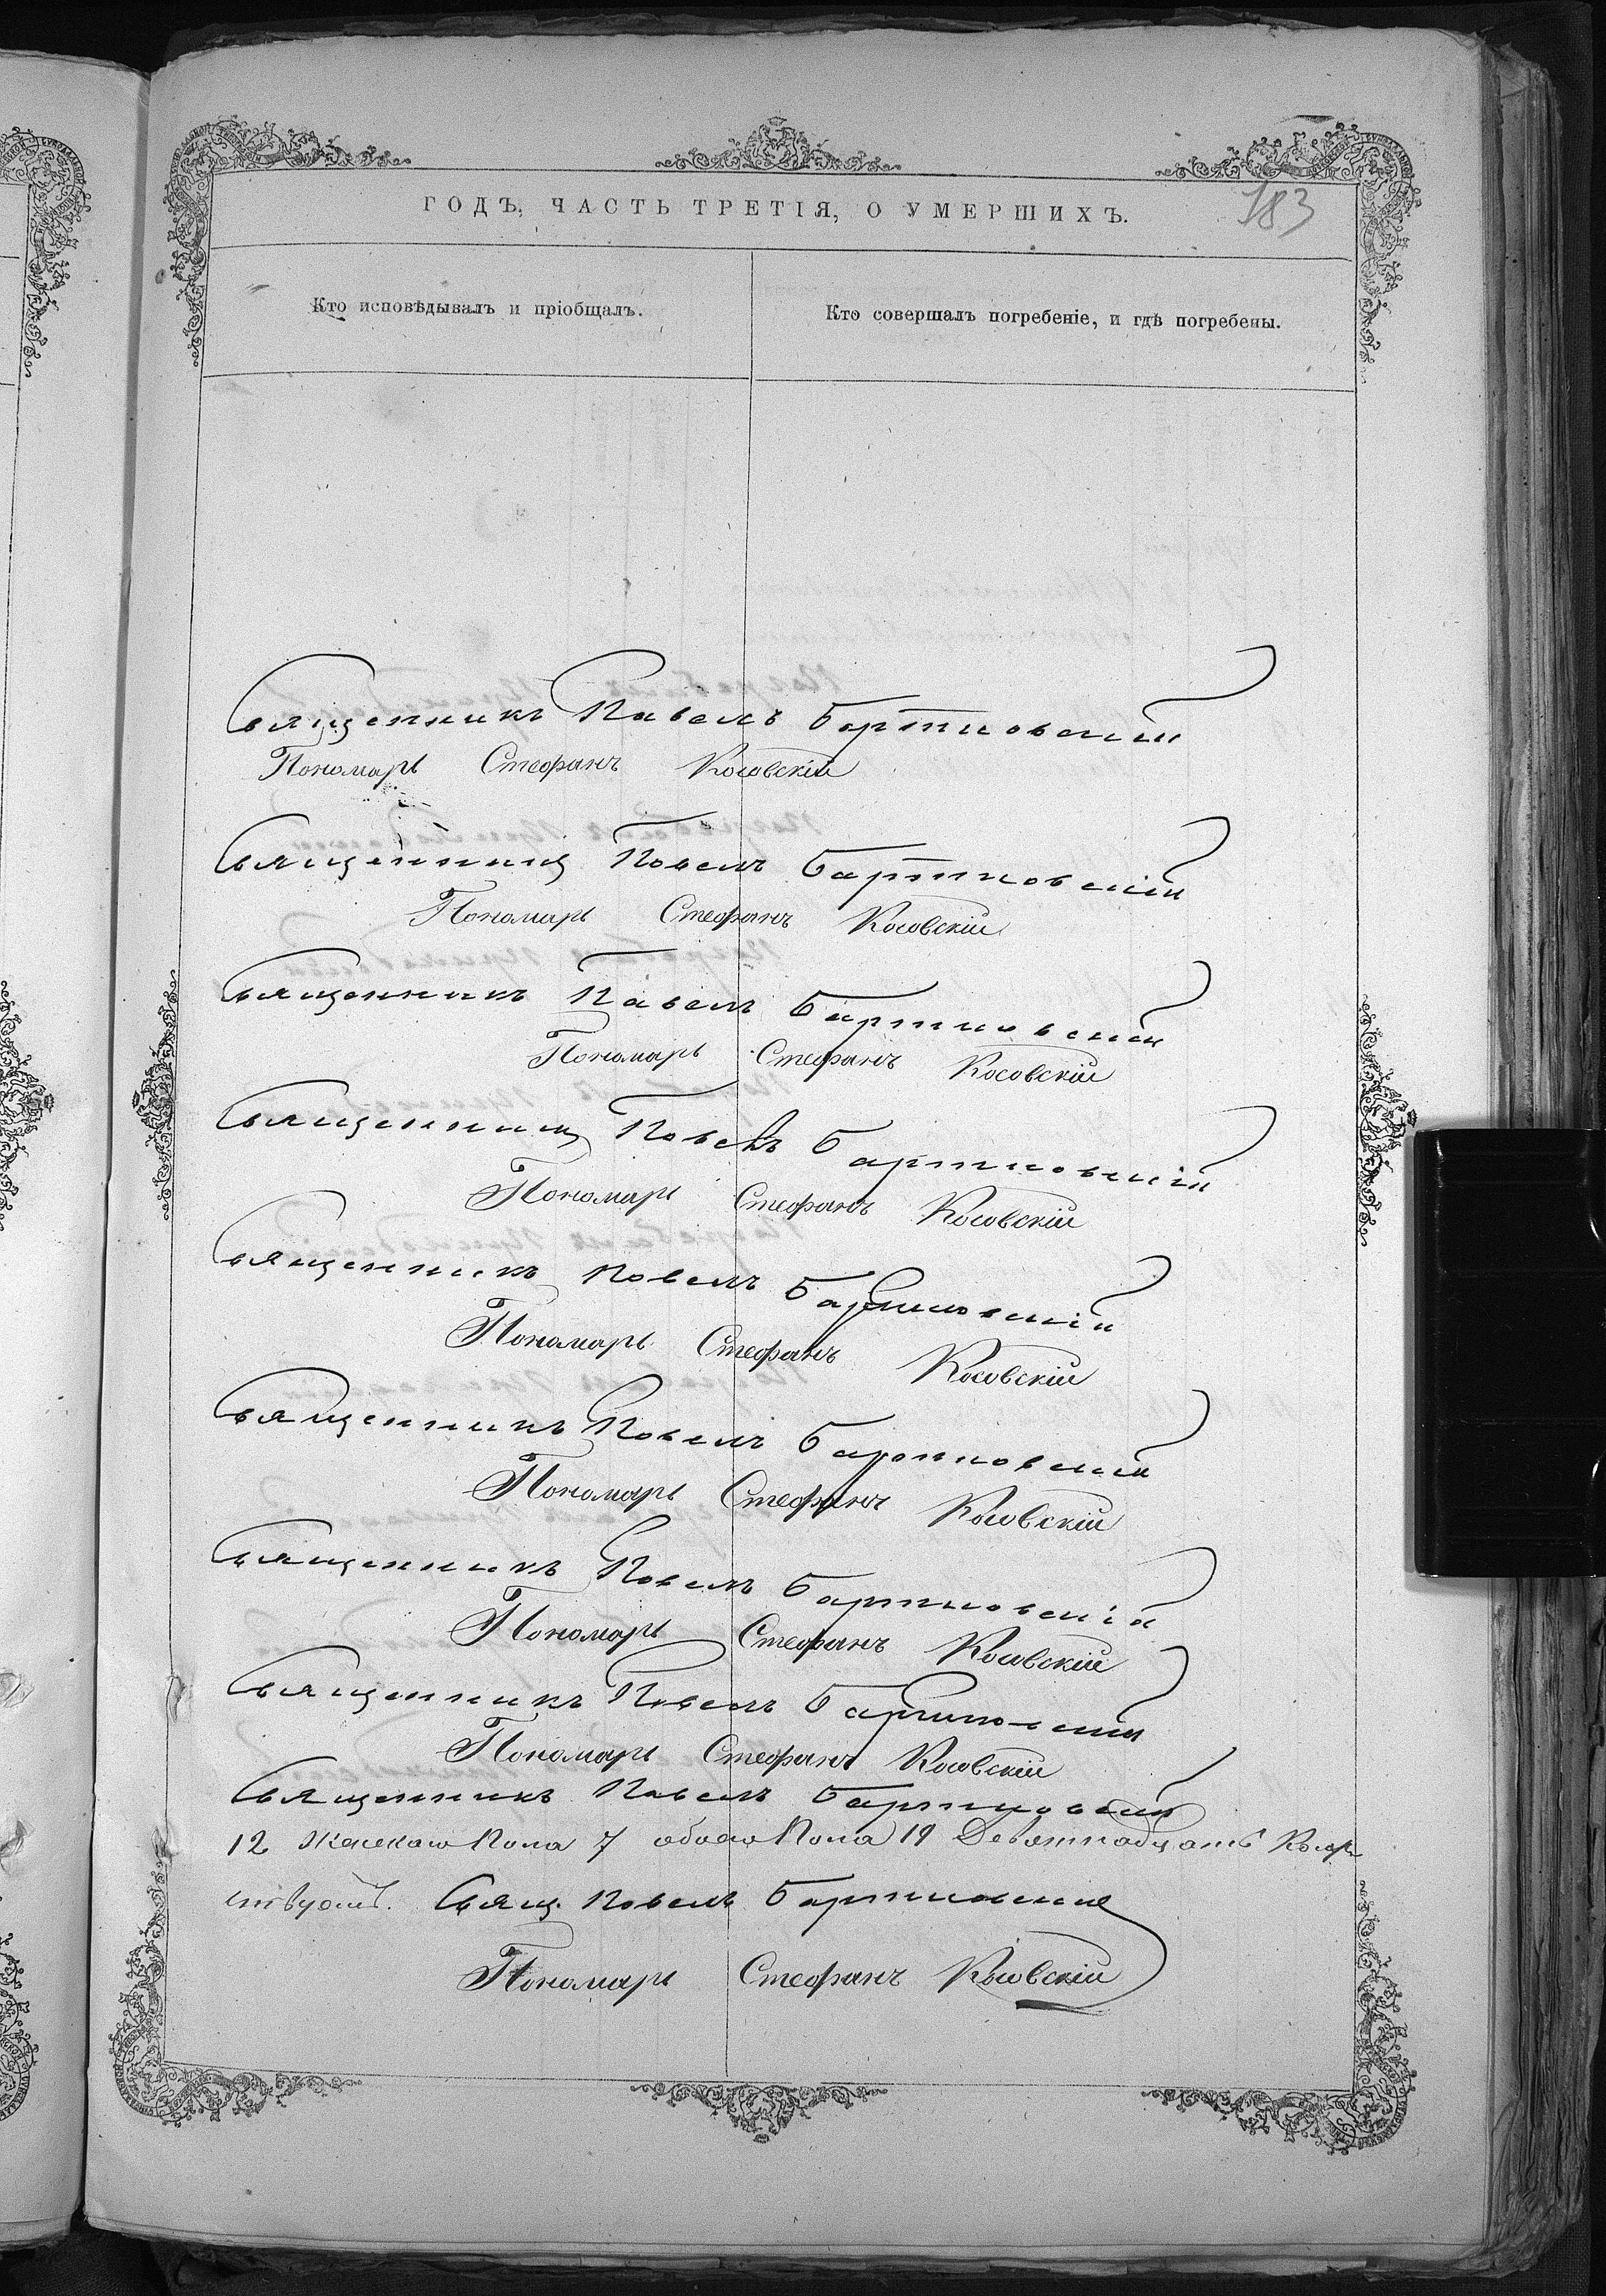 183
ГОДЪ, ЧАСТЬ ТРЕТІЯ, О УМЕРШИХЪ.
Кто исповѣдывалъ и пріобщалъ.
Кто совершалъ погребеніе, и гдѣ погребены.
Священникъ Павелъ Бартновскій
Пономарь Стефанъ Косовскій
Священникъ Павелъ Бартновскій
Пономарь Стефанъ Косовскій
Священникъ Павелъ Бартновскій
Пономарь Стефанъ Косовскій
Священникъ Павелъ Бартновскій
Пономарь Стефанъ Косовскій
Священникъ Павелъ Бартновскій
Пономарь Стефанъ Косовскій
Священникъ Павелъ Бартновскій
Пономарь Стефанъ Косовскій
Священникъ Павелъ Бартновскій
Пономарь Стефанъ Косовскій
Священникъ Павелъ Бартновскій
Пономарь Стефанъ Косовскій
Священникъ Павелъ Бартновскій
12 женскаго пола 7 обоего пола 19 Девятнадцать
Свящ. Павелъ Бартновскій
Пономарь Стефанъ Косовскій